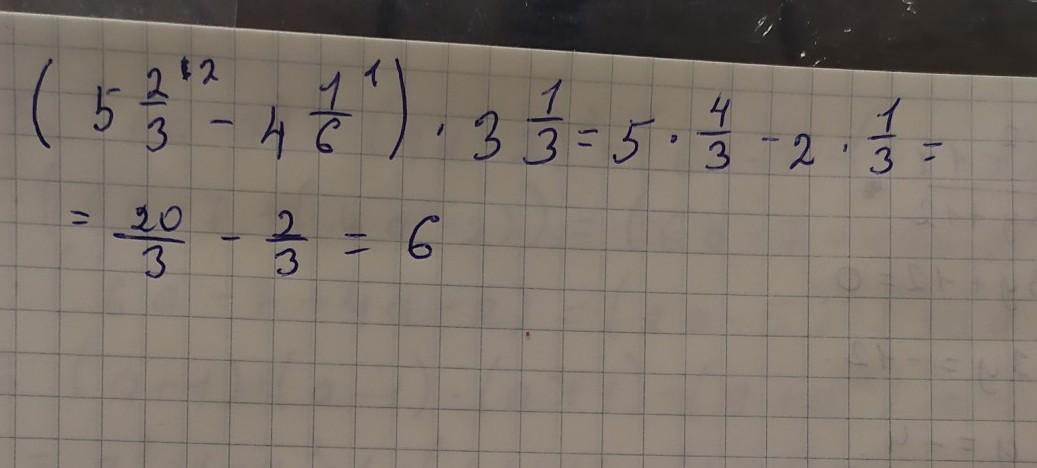 (5 2/3 ·2 - 4 1/6 1) · 3 1/3 = 5 · 4/3 - 2 · 1/3 =
= 20/3 - 2/3 = 6